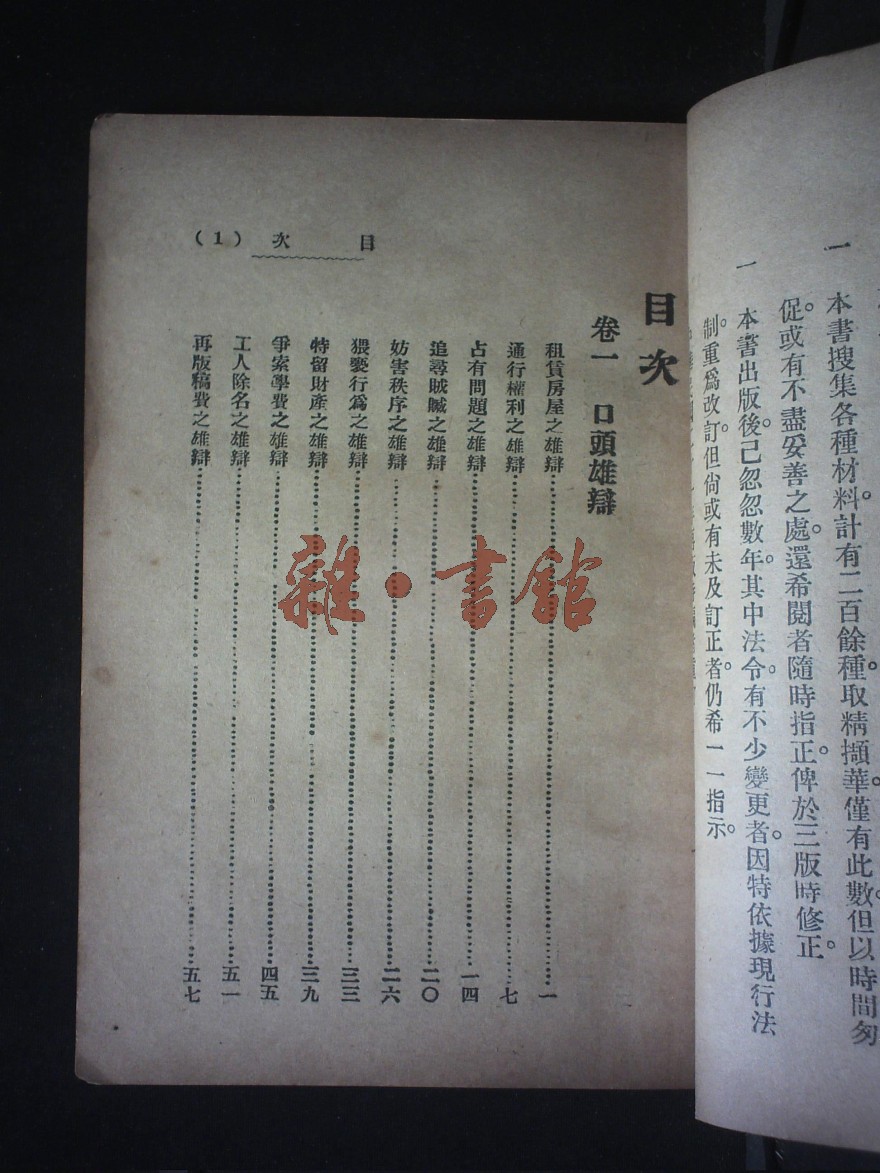 一 本書搜集各種材料。計有二百餘種。取精擷華。僅有此數。但以時間匆
促。或有不盡妥善之處。還希閱者隨時指正。俾於三版時修正。
一 本書出版後。已忽忽數年。其中法令。有不少變更者。因特依據現行法
制。重爲改訂。但尙或有未及訂正者。仍希一一指示。
目次
卷一 口頭雄辯
租賃房屋之雄辯 一
通行權利之雄辯 七
占有問題之雄辯 一四
追尋賊贓之雄辯 二〇
妨害秩序之雄辯 二六
猥褻行爲之雄辯 三三
特留財產之雄辯 三九
爭索學費之雄辯 四五
工人除名之雄辯 五一
再版稿費之雄辯 五七
目次 (1)
雜·書館